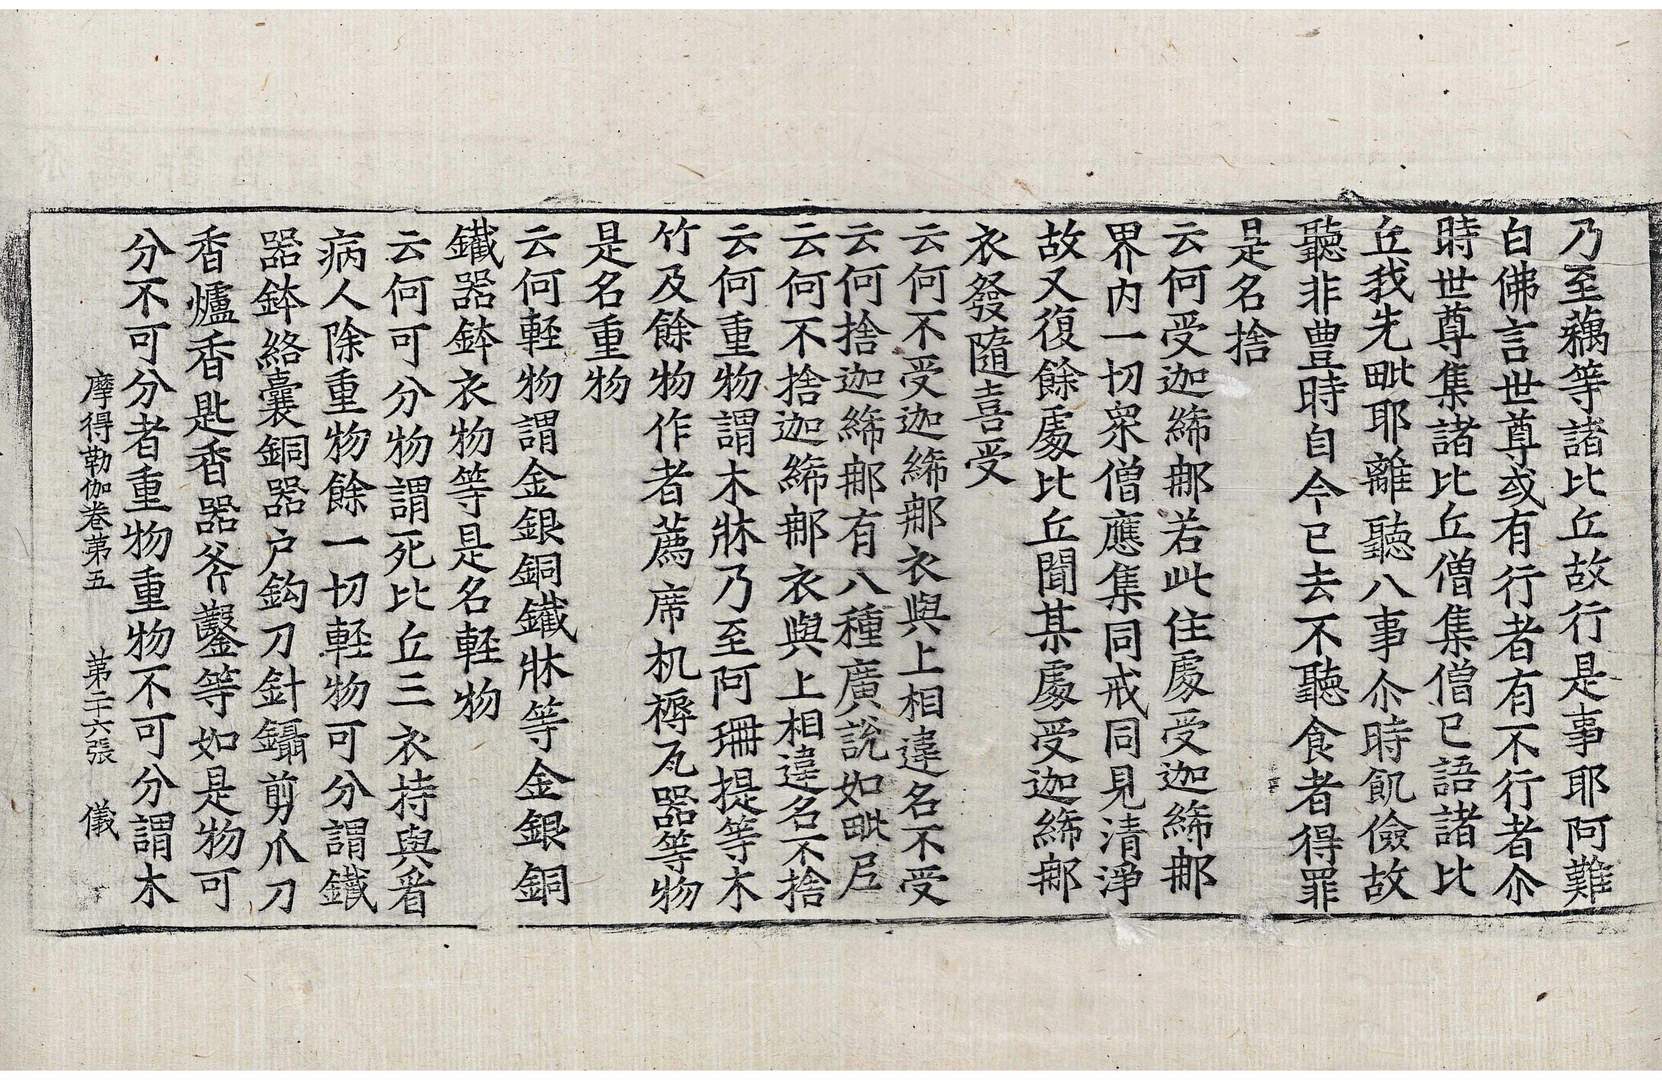 乃至藕等諸比丘故行是事耶阿難
白佛言世尊或有行者有不行者尒
時世尊集諸比丘僧集僧已語諸比
丘我先毗耶離聽八事尒時飢儉故
聽非豊時自今已去不聽食者得罪
是名捨
云何受迦絺那若此住處受迦絺那
界内一切衆僧應集同戒同見清淨
故又復餘處比丘聞某處受迦絺那
衣發隨喜受
云何不受迦絺那衣與上相違名不受
云何捨迦絺那有八種廣說如毗尼
云何不捨迦絺那衣與上相違名不捨
云何重物謂木牀乃至阿珊提等木
竹及餘物作者薦席机褥瓦器等物
是名重物
云何輕物謂金銀銅鐵牀等金銀銅
鐵器鉢衣物等是名輕物
云何可分物謂死比丘三衣持與看
病人除重物餘一切輕物可分謂鐵
器鉢絡囊銅器户鈎刀針鑷剪爪刀
香爐香匙香器斧鑿等如是物可
分不可分者重物重物不可分謂木
摩得勒伽卷第五　第二十六張　儀